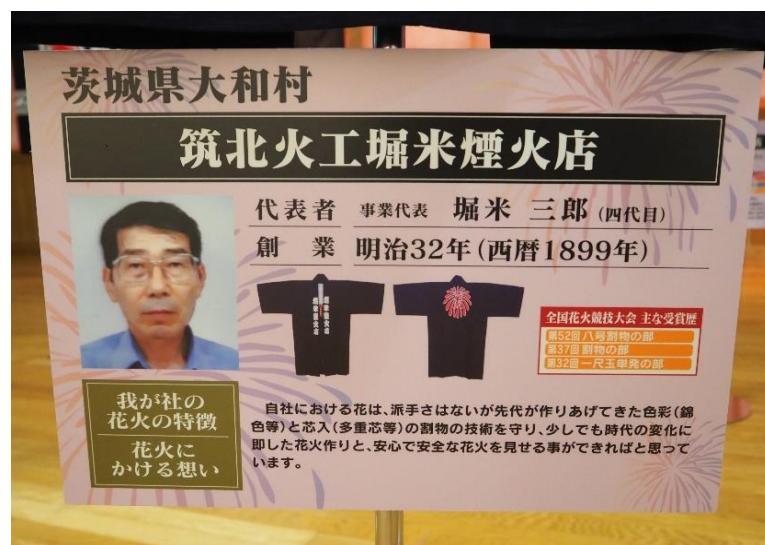 茨城県大和村
筑北火工堀米煙火店
代表者 事業代表 堀米 三郎(四代目)
創業 明治32年(西暦1899年)
全国花火競技大会 主な受賞歴
第52回 八号割物の部
第37回 割物の部
第32回 一尺玉単発の部
我が社の
花火の特徴
花火に
かける想い
自社における花は、派手さはないが先代が作りあげてきた色彩(錦
色等)と芯入(多重芯等)の割物の技術を守り、少しでも時代の変化に
即した花火作りと、安心で安全な花火を見せる事ができればと思って
います。